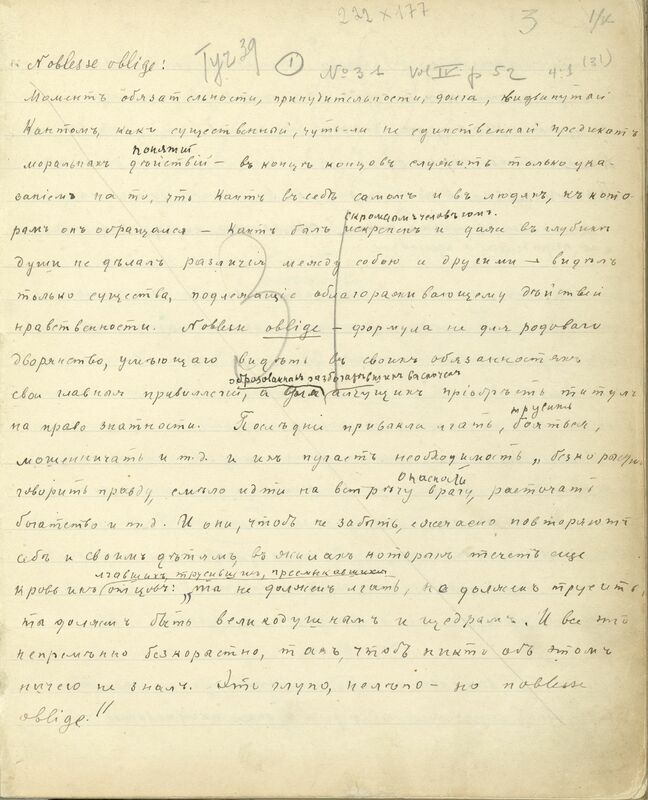 222 × 177
3 1/к
Noblesse oblige: ① № 31 Vol IV. p 52 4:3 (31)
Моментъ обязательности, принудительности, долга, выдвинутый
Кантомъ, какъ существенный, чуть-ли не единственный предикатъ
понятий
моральныхъ действий — въ конце концовъ служитъ только ука-
занiемъ на то, что Кантъ въ себѣ самомъ и въ людяхъ, къ кото-
скромнымъ человѣкомъ.
рымъ онъ обращался — Кантъ былъ искренен и даже въ глубинѣ
души не дѣлалъ различія между собою и другими — видѣлъ
только существа, подлежащіе облагораживающему дѣйствію
нравственности. Noblesse oblige — формула не для родоваго
дворянства, умѣющаго видѣть въ своихъ обязанностяхъ
образованныхъ разбогатѣвшихъ
свои главныя привиллегіи, а для алчущихъ пріобрѣсть титулъ
трусить
на право знатности. Послѣдніе привыкли лгать, бояться,
мошенничать и т.д. и ихъ пугаетъ необходимость „
опасности
говорить правду, смѣло идти на встрѣчу врагу, расточать
богатство и т.д. И они, чтобъ не забыть, ежечасно повторяютъ
себѣ и своимъ дѣтямъ, въ жилахъ которыхъ течетъ еще
лгавшихъ, трусившихъ, пресмыкавшихся
кровь ихъ отцовъ: „ты не долженъ лгать, не долженъ трусить,
ты долженъ быть великодушнымъ и щедрымъ. И все это
непремѣнно безкорыстно, такъ, чтобъ никто объ этомъ
ничего не зналъ. Это глупо, нелѣпо — но noblesse
oblige."